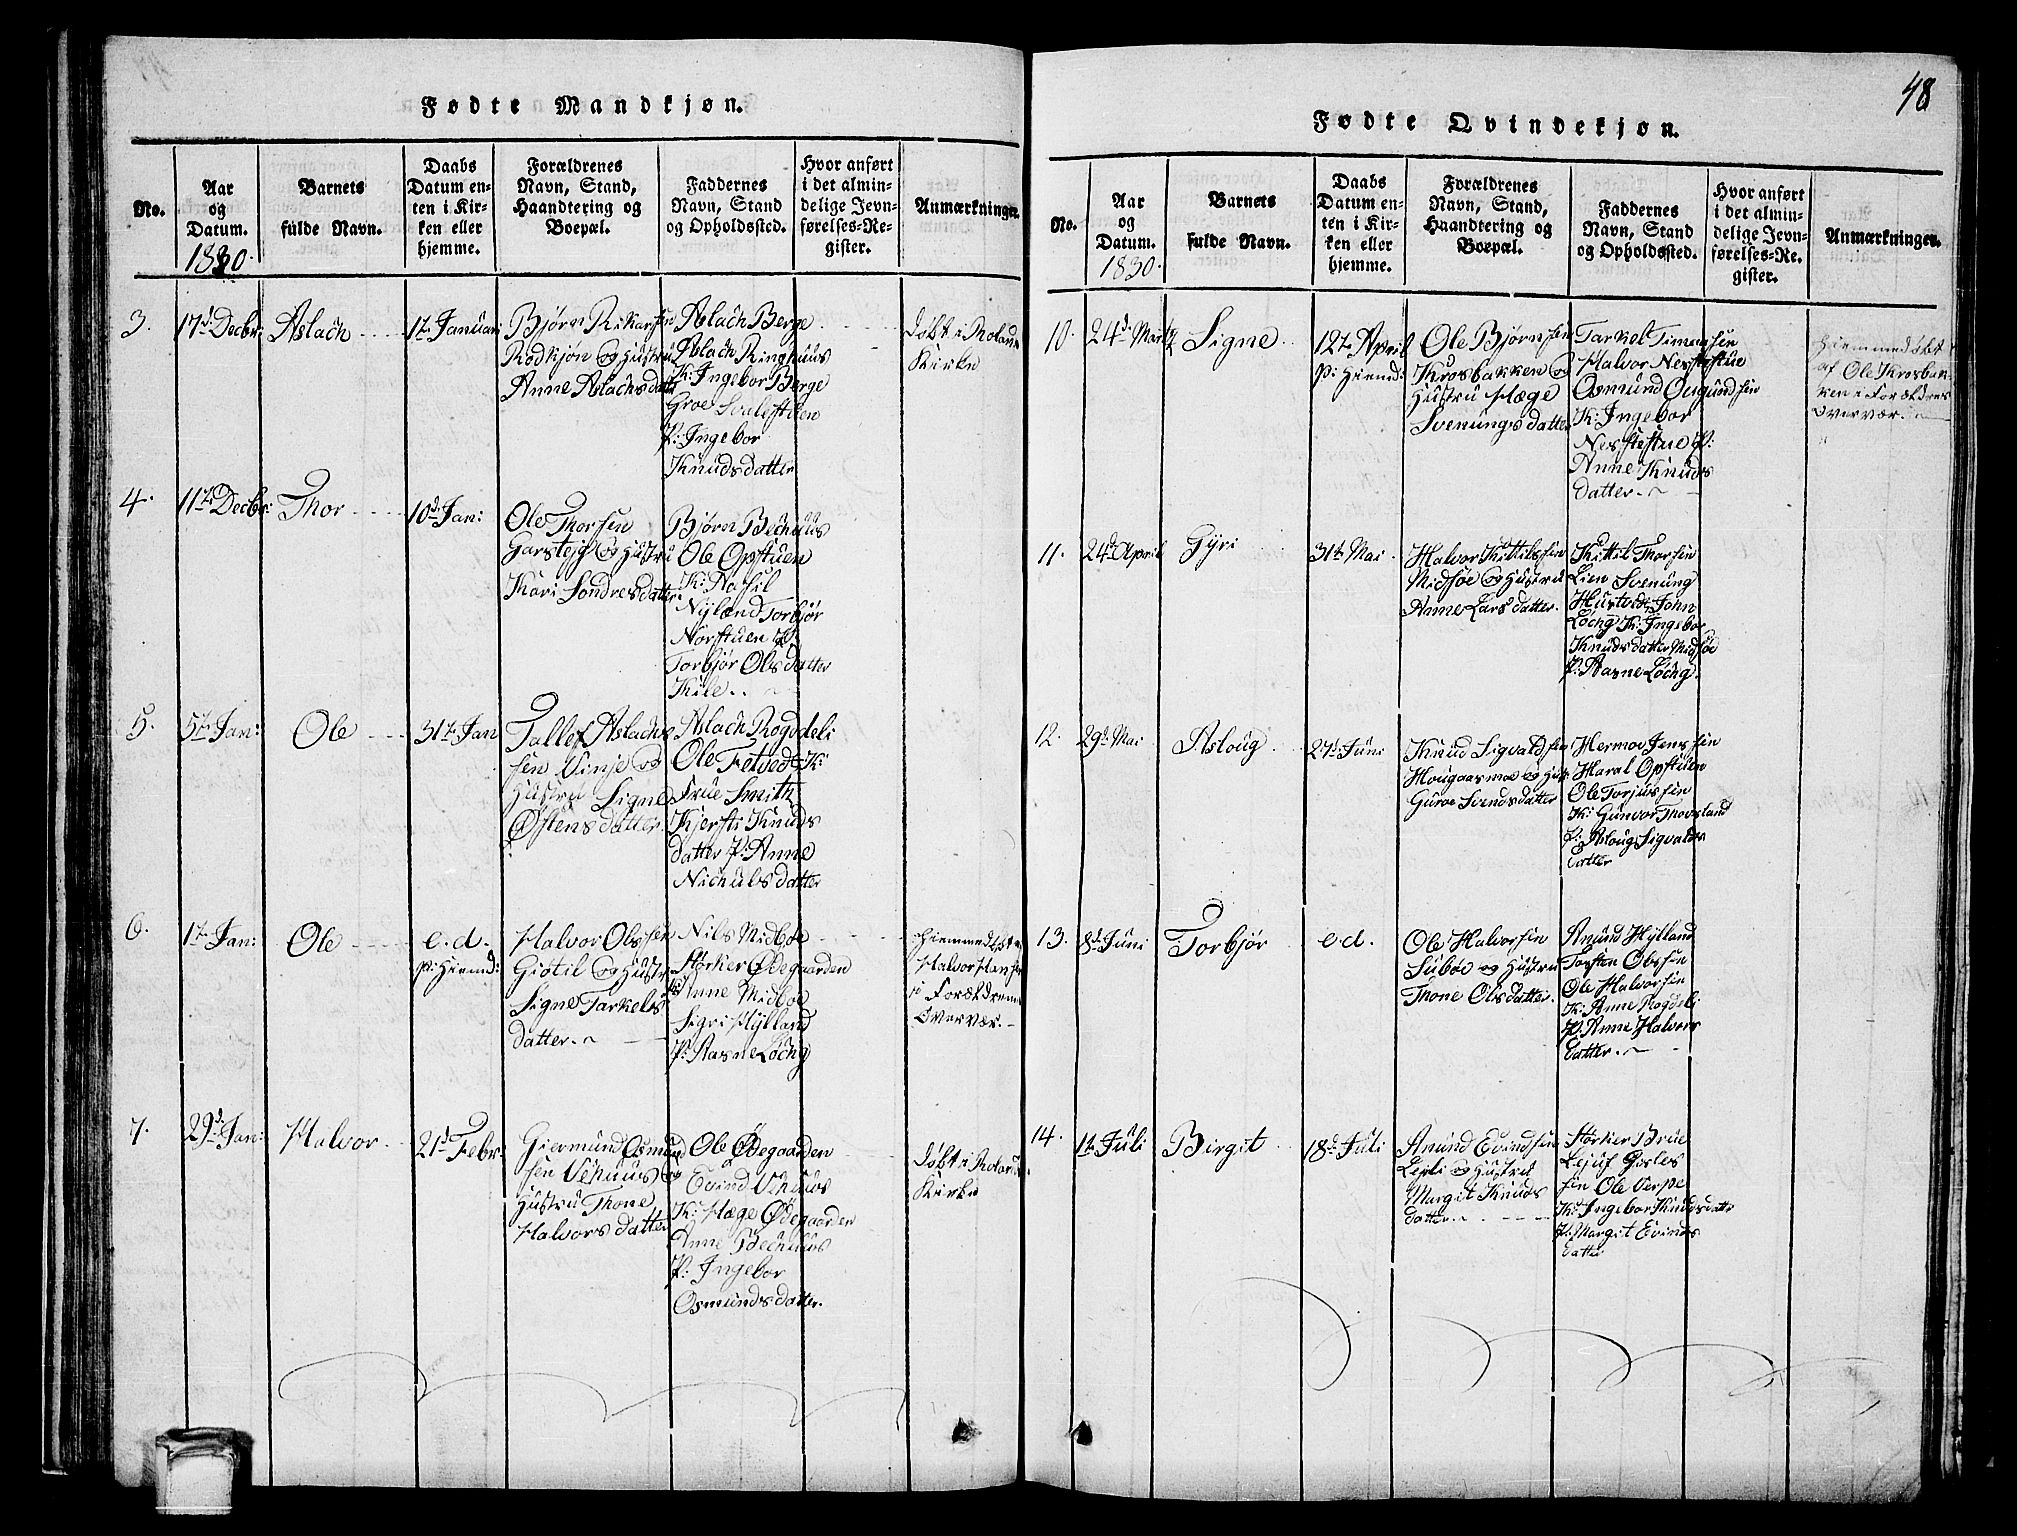 Fødte Mandkjøn.
No.
Aar
og
Datum.
1830.
Barnets
fulde Navn.
Daabs
Datum en-
ten i Kir-
ken eller
hjemme.
Forældrenes
Navn, Stand,
Haandtering og
Boepæl.
Faddernes
Navn, Stand
og Opholdssted.
Hvor anført
i det almin-
delige Jevn-
førelses-Re-
gister.
Anmærkninger.
3.
17d Decbr:
Aslach
1t Januari
Bjørn Rikarsen
Rodkjøn og Hustru
Anne Aslachsdatter
Aslach Berge
Aslach Ringhuus
K: Ingebor Berge
Groe Svalestuen
P: Ingebor
Knudsdatter
Døbt i Moland
Kirke
4.
11t Decbr:
Thor
10d Jan:
Ole Thorsen
Garstejg og Hustru
Kari Sondresdatter
Bjørn Bechuus
Ole Opstuen
K: Aasil
Nyland Torbjør
Norstuen P:
Torbjør Olsdatter
Kile.
5.
5t Jan:
Ole
31t Jan
Tallef Aslach
sen Vinje og
Hustru Signe
Østensdatter.
Aslach Rogvdeli
Ole Fetved K:
Frue Smith
Kjersti Knuds
datter P: Anne
Nichulsdatter
6.
1t Jan:
Ole
e.d.
p: Hiemd:
Halvor Olssen
Giøtil og Hustr
Signe Tarkels
datter.
Nils Midbøe
Størker Ødegaarden
K: Anne Midboe
Sigri Hylland
P: Aasne Løchg
Hiemmedøbt af
Halvor Hansen
i Forældrenes
Overvær.
7.
29d Jan:
Halvor
21d Febr:
Giermund Osmund
sen Vehuus og
Hustru Thone
Halvorsdatter
Ole Ødegaarden
Evind Vehuus
K: Hæge Ødegaarden
Anne Bechuus
P: Ingebor
Osmundsdatter.
Døbt i Moland
Kirke
48
Fødte Qvindekjøn.
No.
Aar
og
Datum.
1830.
Barnets
fulde Navn.
Daabs
Datum en-
ten i Kir-
ken eller
hjemme.
Forældrenes
Navn, Stand,
Haandtering og
Boepæl.
Faddernes
Navn, Stand
og Opholdssted.
Hvor anført
i det almin-
delige Jevn-
førelses-Re-
gister.
Anmærkninger.
10.
24d Martz
Signe
12t April
p: Hiemd:
Ole Bjørnsen
Krosbakken og
Hustru Hæge
Svenungsdatter
Tarkel Timansen
Halvor Nerstestue
Osmund Ougundsen
K: Ingebor
Nerstestue P:
Anne Knuds
datter.
Hiemmedøbt
af Ole Krosbak-
ken i Forældres
Overvær.
11.
24d April
Gyri
31t Mai
Halvor Kittilssen
Midsøe og Hustru
Anne Larsdatter.
Kittil Thorsen
Lien Svenung
John
Løchg K: Ingebor
Knudsdatter Midsøe
P: Aasne Løchg.
12.
29d Mai
Asloug
27d Juni
Knud Sigvaldsen
Hougaasmoe og Hus:
Guroe Svendsdatter
Hermov Jenssen
Haral Opstuen
Ole Torjussen
K: Gunvor Thorsland
P: Asloug Sigvalds
datter
13.
8d Juni
Torbjør
e.d.
Ole Halvorsen
Lubøe og Hustru
Thone Olsdatter.
Amund Hylland
Torsten Olssen
Ole Halvorsen
K: Anne Rogdeli
P: Anne Halvors
datter.
14.
1t Juli
Birgit
18d Juli
Amund Evindsen
Lerli og Hustru
Margit Knuds
datter.
Størker Brue
Lejuf Gisles
sen Ole Verpe
K: Ingebor Knudsdatter
P: Margit Evinds
datter